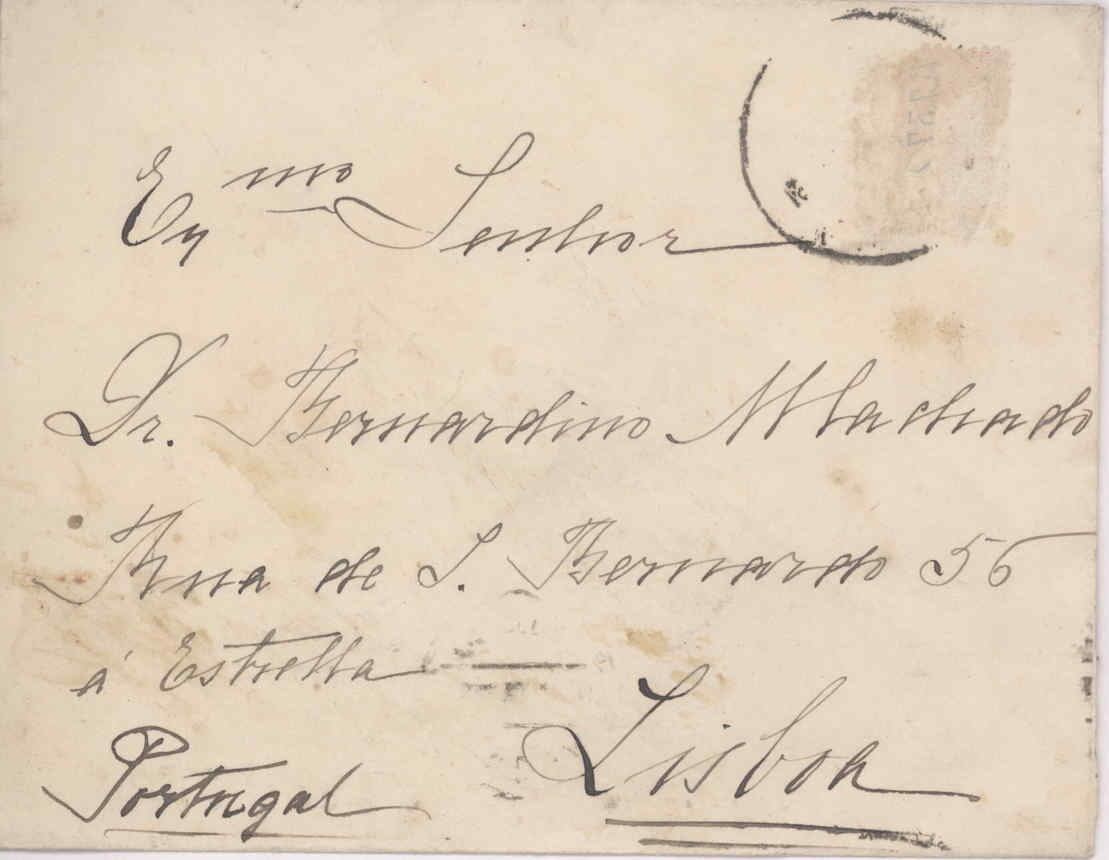 Exmo Senhor
Dr. Bernardino Machado
Rua de S. Bernardo 56
á Estrella
Lisboa
Portugal